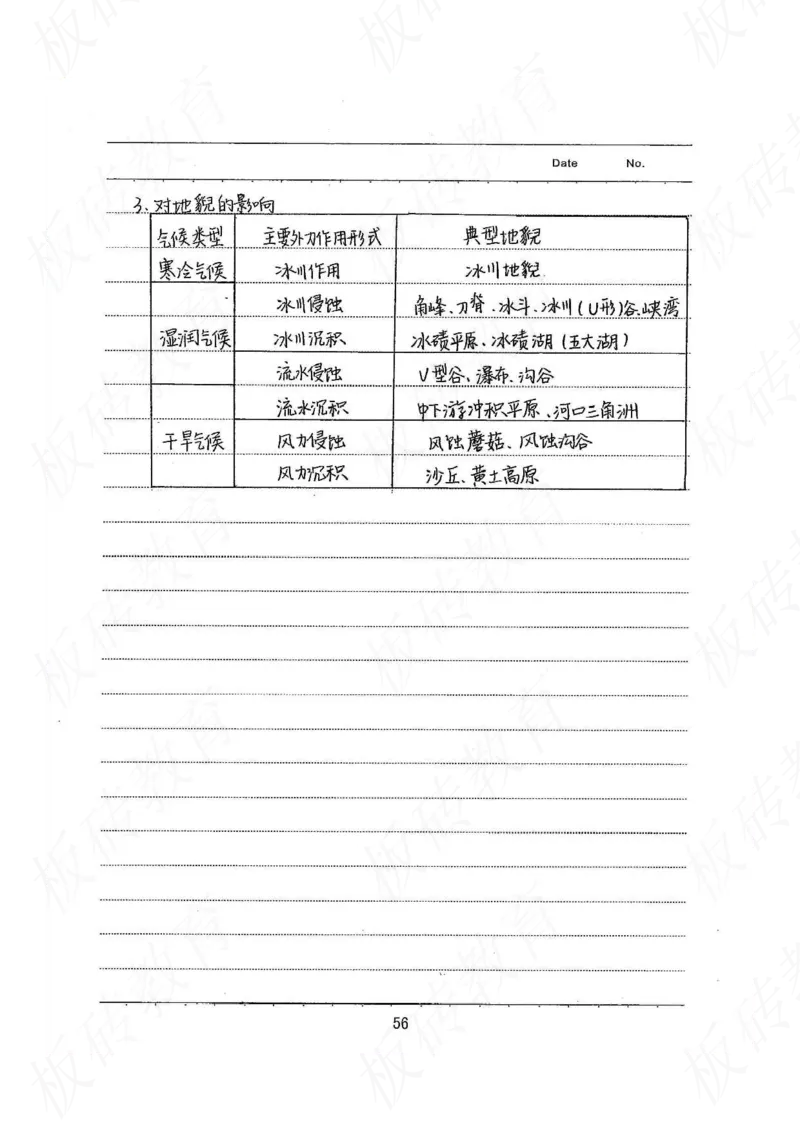 Date No.
3. 对地貌的影响
气候类型 主要外力作用形式 典型地貌
寒冷气候 冰川作用 冰川地貌
冰川侵蚀 角峰、刃脊、冰斗、冰川(U形)谷、峡湾
湿润气候 冰川沉积 冰碛平原、冰碛湖(五大湖)
流水侵蚀 V型谷、瀑布、沟谷
流水沉积 中下游冲积平原、河口三角洲
干旱气候 风力侵蚀 风蚀蘑菇、风蚀沟谷
风力沉积 沙丘、黄土高原
56
板砖教育